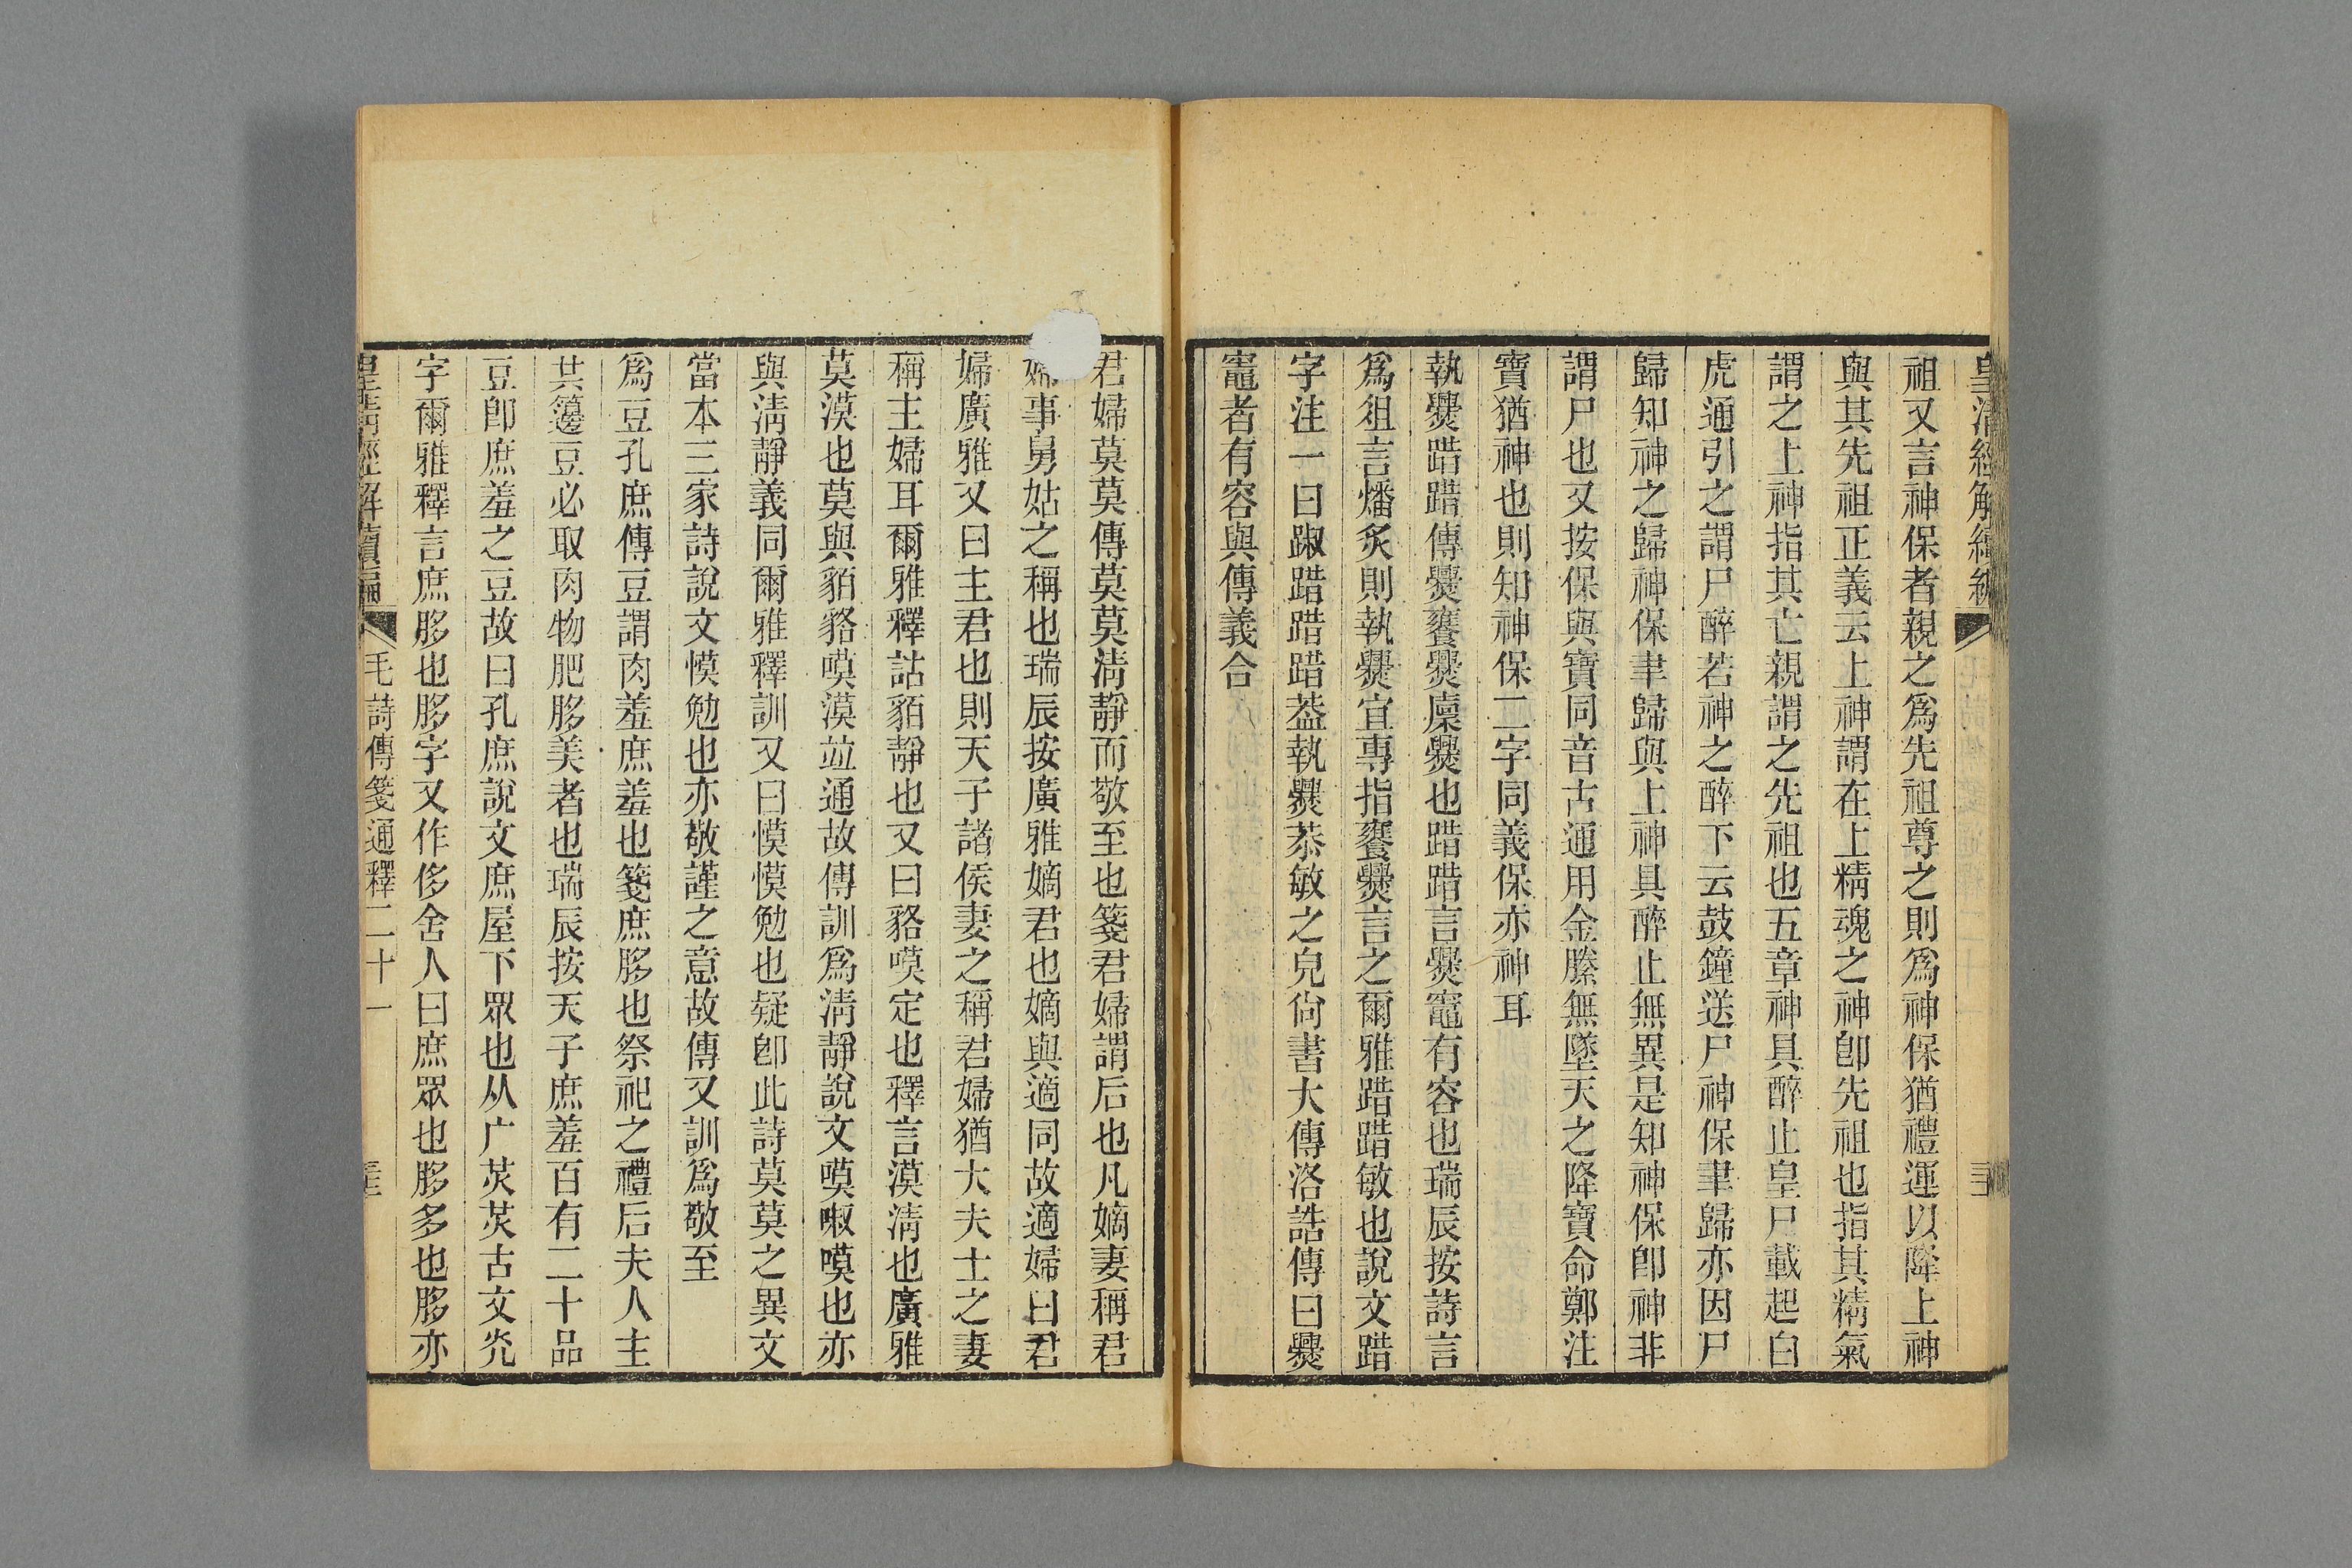 皇清經解續編
祖又言神保者親之爲先祖尊之則爲神保猶禮運以降上神
與其先祖正義云上神謂在上精魂之神卽先祖也指其精氣
謂之上神指其亡親謂之先祖也五章神具醉止皇尸載起白
虎通引之謂尸醉若神之醉下云鼓鐘送尸神保聿歸亦因尸
歸知神之歸神保聿歸與上神具醉止無異是知神保卽神非
謂尸也又按保與寶同音古通用金縢無墜天之降寶命鄭注
寶猶神也則知神保二字同義保亦神耳
執爨踖踖傳爨饔爨廩爨也踖踖言爨竈有容也瑞辰按詩言
爲俎言燔炙則執爨宜專指饔爨言之爾雅踖踖敏也說文踖
字注一曰踧踖踖踖葢執爨恭敏之皃尙書大傳洛誥傳曰爨
竈者有容與傳義合
君婦莫莫傳莫莫淸靜而敬至也箋君婦謂后也凡嫡妻稱君
婦事舅姑之稱也瑞辰按廣雅嫡君也嫡與適同故適婦曰君
婦廣雅又曰主君也則天子諸侯妻之稱君婦猶大夫士之妻
稱主婦耳爾雅釋詁貊靜也又曰貉嗼定也釋言漠淸也廣雅
莫漠也莫與貊貉嗼漠竝通故傳訓爲淸靜說文嗼㖩嗼也亦
與淸靜義同爾雅釋訓又曰慔慔勉也疑卽此詩莫莫之異文
當本三家詩說文慔勉也亦敬謹之意故傳又訓爲敬至
爲豆孔庶傳豆謂肉羞庶羞也箋庶䏧也祭祀之禮后夫人主
共籩豆必取肉物肥䏧美者也瑞辰按天子庶羞百有二十品
豆卽庶羞之豆故曰孔庶說文庶屋下眾也从广炗炗古文灮
字爾雅釋言庶䏧也䏧字又作侈舍人曰庶眾也䏧多也䏧亦
皇淸經解續編 毛詩傳箋通釋二十一